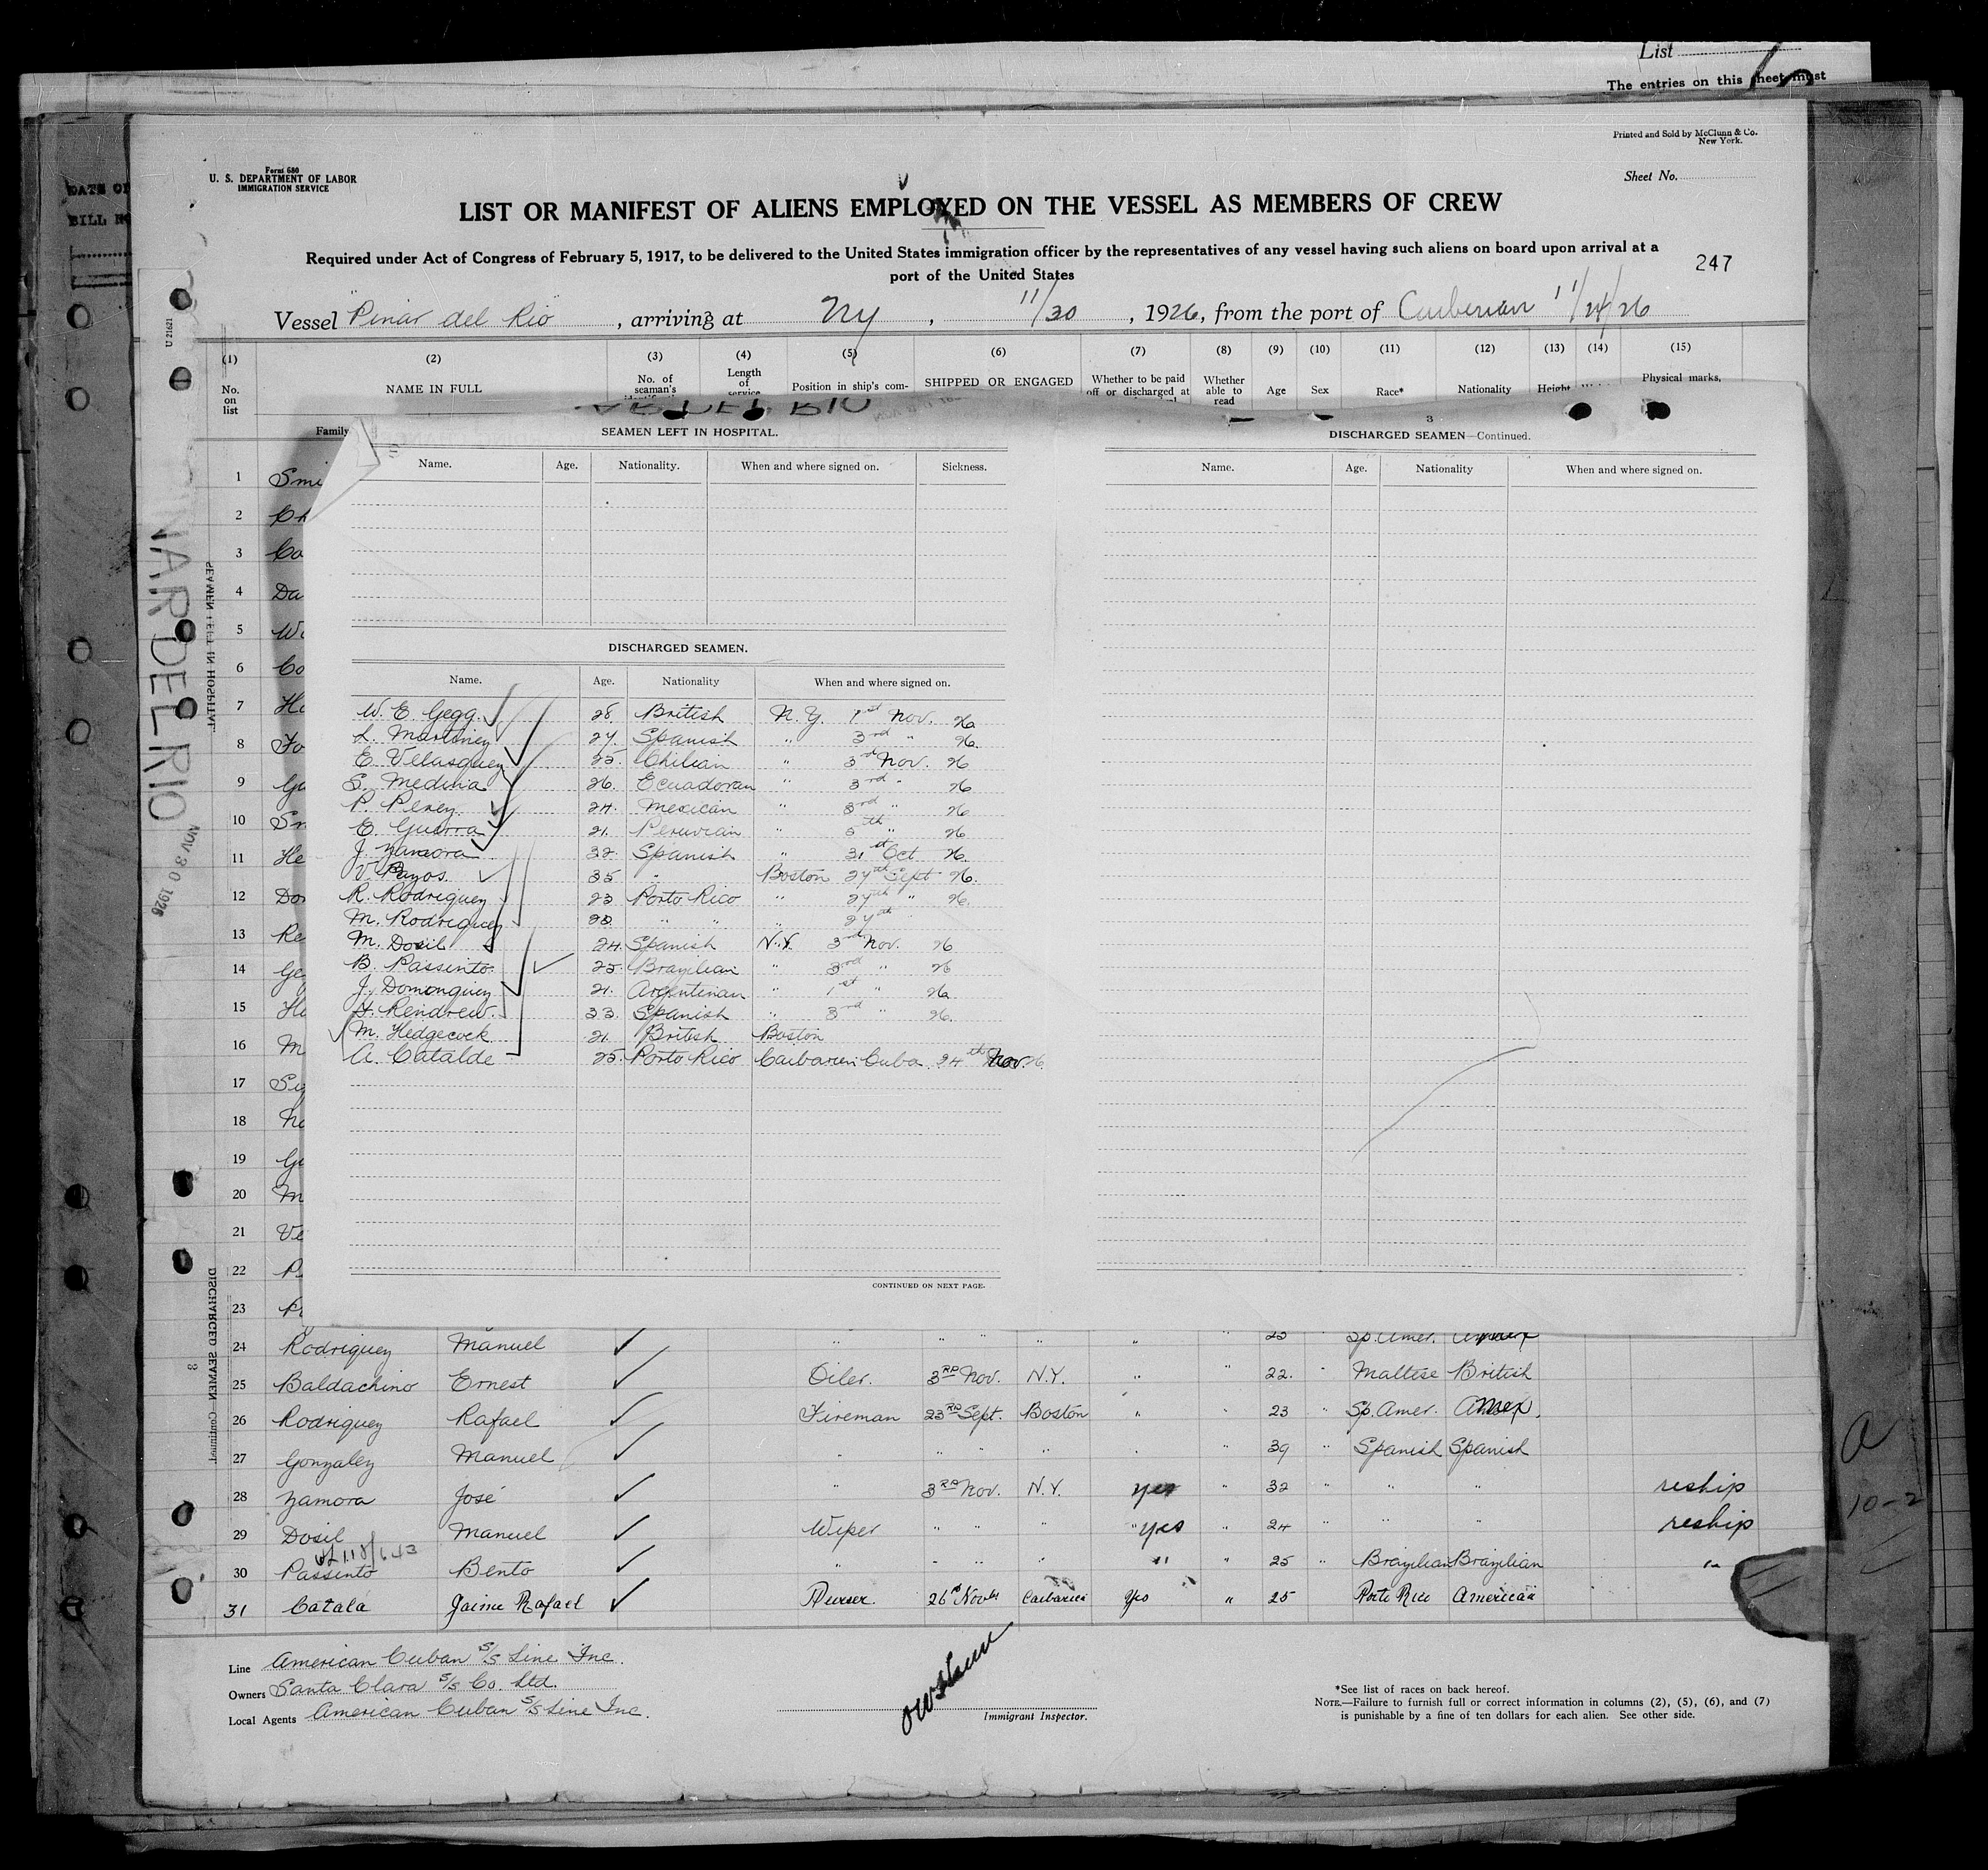 List
The entries on this sheet must
Printed and Sold by McClunn & Co.
New York.
Form 680
U. S. DEPARTMENT OF LABOR
IMMIGRATION SERVICE
Sheet No.
LIST OR MANIFEST OF ALIENS EMPLOYED ON THE VESSEL AS MEMBERS OF CREW
Required under Act of Congress of February 5, 1917, to be delivered to the United States immigration officer by the representatives of any vessel having such aliens on board upon arrival at a
port of the United States
247
Vessel "Pinar del Rio", arriving at Ny, 11/30, 1926, from the port of Caiberian 11/24/26
(1) (2) (3) (4) (5) (6) (7) (8) (9) (10) (11) (12) (13) (14) (15)
No. on list NAME IN FULL No. of seaman's Length of service Position in ship's com- SHIPPED OR ENGAGED Whether to be paid off or discharged at Whether able to read Age Sex Race* Nationality Height Physical marks,
Family
SEAMEN LEFT IN HOSPITAL.
Name. Age. Nationality. When and where signed on. Sickness.
3
DISCHARGED SEAMEN—Continued.
Name. Age. Nationality When and where signed on.
1 Smi
2 Ch
3 Co
4 Da
5 Wi
6 Co
7 Ha
8 Fo
9 Ga
10 Sm
11 He
12 Don
13 Re
14 Ge
15 He
16 M
17 Su
18 Na
19 Ga
20 M
21 Ve
22 P
23 P
DISCHARGED SEAMEN.
Name. Age. Nationality When and where signed on.
W. E. Gegg. 28. British N.Y. 1st Nov. 26
L. Martinez 27. Spanish " 3rd " 26.
E. Velasquez 25. Chilian " 3rd Nov. 26
S. Medina 26. Ecuadoran " 3rd " 26
P. Perez. 24. Mexican " 3rd " 26
E. Guerra 21. Peruvian " 5th " 26
J. Zamora 32. Spanish " 31st Oct 26.
V. Payos. 35 " Boston 27th Sept 26.
R. Rodriguez 23 Porto Rico " 27th " 26.
M. Rodriguez 28. " " 27th "
M. Dosil 24. Spanish N.Y. 3rd Nov. 26
B. Passinto 25. Brazilian " 3rd " 26
J. Dominguez 21. Argentinian " 1st " 26
H. Rendrew. 33. Spanish " 3rd " 26.
M. Hedgecock 21. British Boston
A. Catalde 25. Porto Rico Caibarien Cuba. 24th Nov. 26.
CONTINUED ON NEXT PAGE.
24 Rodriguez Manuel " " " " " " 23 " Sp. Amer. Amer
25 Baldachino Ernest Oiler. 3RD Nov. N.Y. " " 22. " Maltese British
26 Rodriguez Rafael Fireman 23RD Sept. Boston " " 23 " Sp. Amer. Amer.
27 Gonzalez Manuel " " " " " " 39 " Spanish Spanish
28 Zamora José " 3RD Nov. N.Y. yes " 32 " " " reship
29 Dosil Manuel Wiper " " " yes " 24 " " " reship
30 Passinto Bento " " " " " " 25 " Brazilian Brazilian "
31 Catalá Jaime Rafael Purser. 26th Novbr Caibarien Yes " 25 Porto Rico American
Line American Cuban S/S Line Inc.
Owners Santa Clara S/S Co. Ltd.
Local Agents American Cuban S/S Line Inc.
Immigrant Inspector.
*See list of races on back hereof.
NOTE.—Failure to furnish full or correct information in columns (2), (5), (6), and (7)
is punishable by a fine of ten dollars for each alien. See other side.
NAR DEL RIO
NOV 30 1926
SEAMEN LEFT IN HOSPITAL.
DISCHARGED SEAMEN—Continued.
DATE OF
BILL
10-2